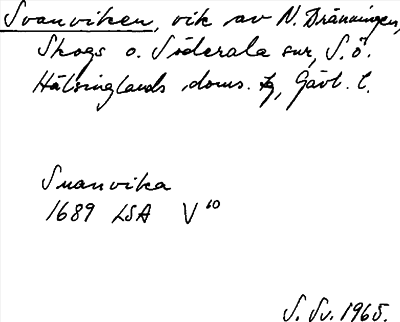 Svanviken, vik av N. Dränningen,
Skogs o. Söderala snr, S. ö.
Hälsinglands doms. tg, Gävl. l.
Suanvika
1689 LSA V¹⁰
S. Sv. 1965.